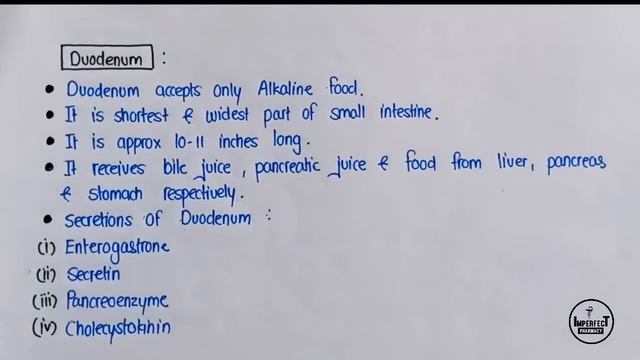 Duodenum :
• Duodenum accepts only Alkaline food.
• It is shortest & widest part of small intestine.
• It is approx 10-11 inches long.
• It receives bile juice, pancreatic juice & food from liver, pancreas
& stomach respectively.
• Secretions of Duodenum :
(i) Enterogastrone
(ii) Secretin
(iii) Pancreoenzyme
(iv) Cholecystokinin
IMPERFECT
PHARMACY